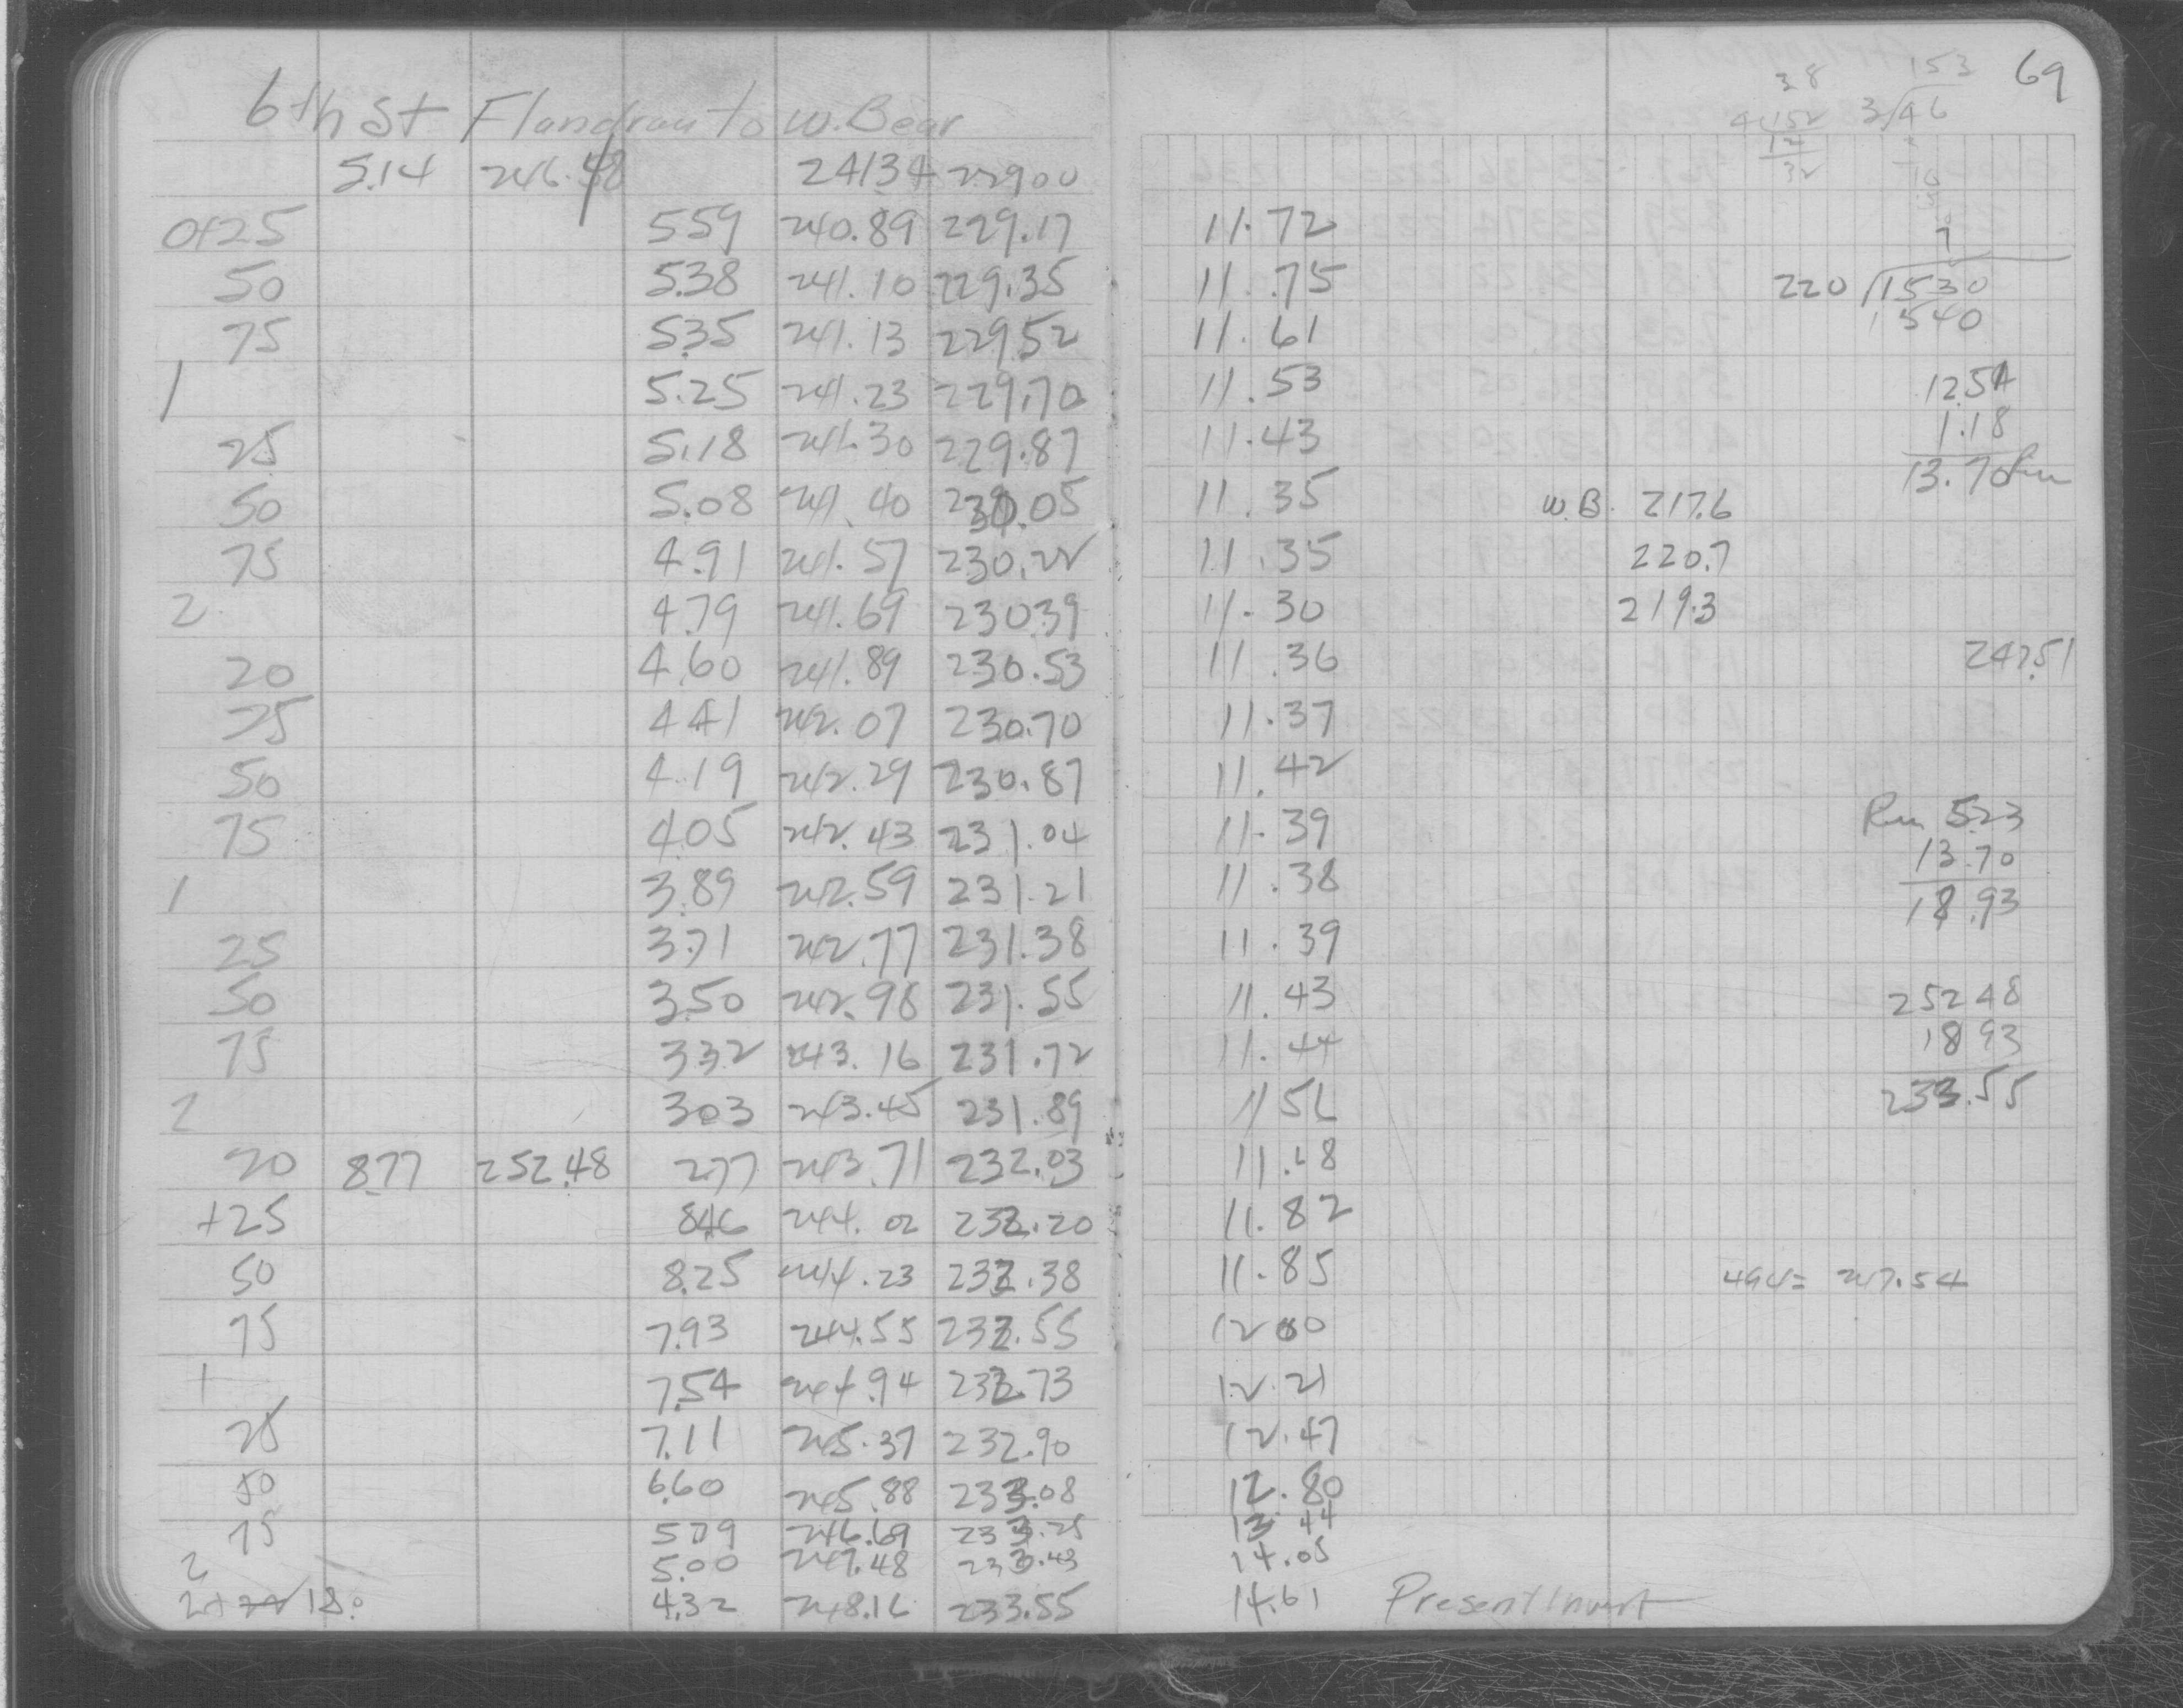 69
6th St Flandrau to W. Bear
5.14 246.48 24134 22900
0+25 559 240.89 229.17 11.72
50 5.38 241.10 229.35 11.75
75 5.35 241.13 229.52 11.61
1 5.25 241.23 229.70 11.53
25 5.18 241.30 229.87 11.43
50 5.08 241.40 230.05 11.35
75 4.91 241.57 230.22 11.35
2 4.79 241.69 230.39 11.30
20 4.60 241.89 230.53 11.36
25 441 242.07 230.70 11.37
50 4.19 242.29 230.87 11.42
75 4.05 242.43 231.04 11.39
1 3.89 242.59 231.21 11.38
25 3.71 242.77 231.38 11.39
50 3.50 242.98 231.55 11.43
75 3.32 243.16 231.72 11.44
2 303 243.45 231.89 1156
20 8.77 252.48 277 243.71 232.03 11.68
+25 846 244.02 232.20 11.82
50 8.25 244.23 232.38 11.85
75 7.93 244.55 232.55 1200
1 7.54 244.94 232.73 12.21
25 7.11 245.37 232.90 12.47
50 6.60 245.88 233.08 12.80
75 579 246.69 233.25 13 44
2 5.00 247.48 233.43 14.05
2+ 18. 4.32 248.16 233.55 14.61 Present Invert
38
4 152
12
32
153
3 46
7
220 1530
1540
12.54
1.18
13.70 Rm
W.B. 217.6
220.7
219.3
247.51
Rm 5.23
13.70
18.93
252 48
18 93
233.55
494= 247.54